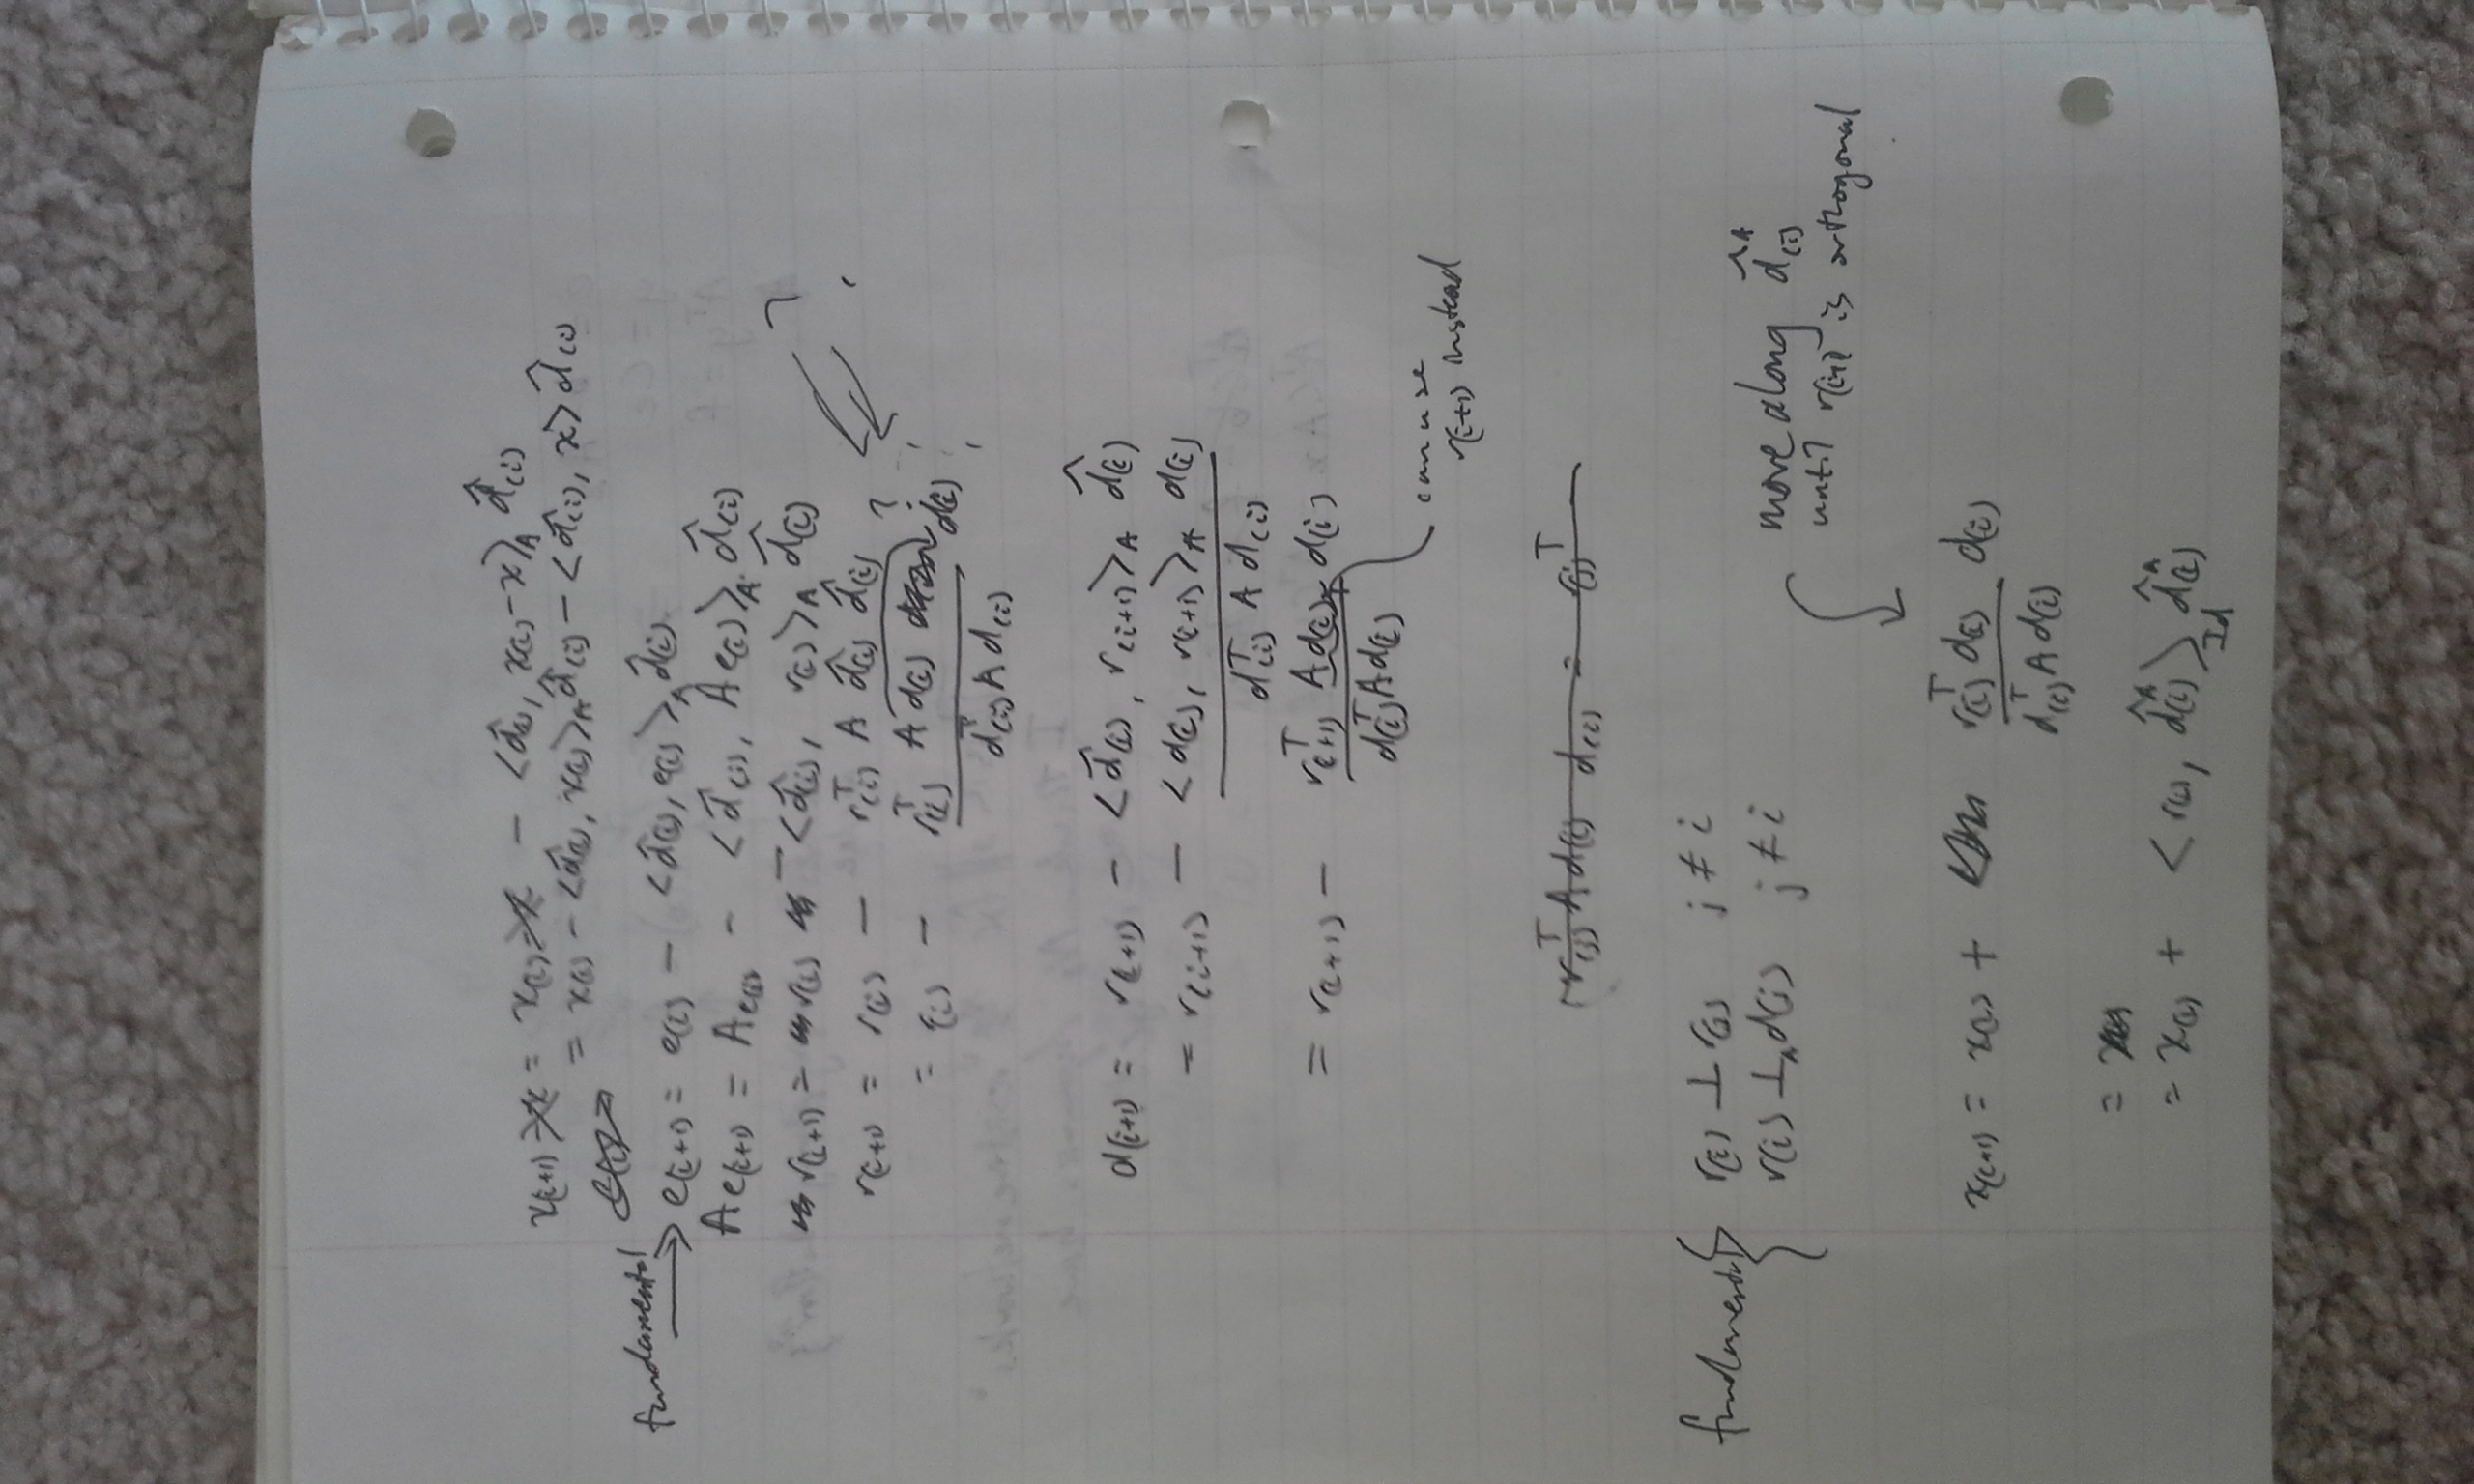 x(i+1) = x(i) - <d̂(i), x(i) - x>_A d̂(i)
= x(i) - <d̂(i), x(i)>_A d̂(i) - <d̂(i), x> d̂(i)
fundamental
→ e(i+1) = e(i) - <d̂(i), e(i)>_A d̂(i)
Ae(i+1) = Ae(i) - <d̂(i), Ae(i)>_A d̂(i)
r(i+1) = r(i) - <d̂(i), r(i)>_A d̂(i)
?
r(i+1) = r(i) - r(i)^T A d̂(i) d̂(i)
= r(i) - r(i)^T A d(i) / d(i)^T A d(i) d(i) ?
d(i+1) = r(i+1) - <d̂(i), r(i+1)>_A d̂(i)
= r(i+1) - <d(i), r(i+1)>_A d(i) / d(i)^T A d(i)
= r(i+1) - r(i+1)^T A d(i) / d(i)^T A d(i) d(i)
can use
r(i+1) instead
r(j)^T A d(i) d(i) = r(j)^T
fundamental { r(i) ⊥ r(j) j ≠ i
r(i) ⊥_A d(j) j ≠ i
move along d̂^A(i)
until r(i+1) is orthogonal
x(i+1) = x(i) + r(i)^T d(i) / d(i)^T A d(i) d(i)
=
= x(i) + <r(i), d̂^A(i)>_Id d̂^A(i)